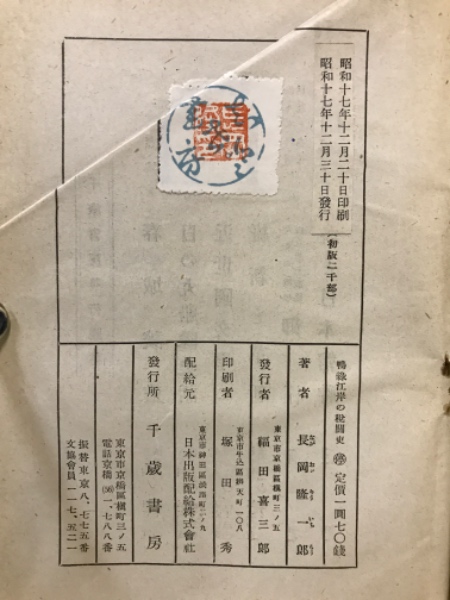 昭和十七年十二月二十日印刷
昭和十七年十二月三十日發行
(初版二千部)
鴨綠江岸の稅關史
定價一圓七〇錢
著者 長岡隆一郎
東京市京橋區槇町三ノ五
發行者 福田喜三郎
東京市牛込區辨天町一〇八
印刷者 塚田秀
配給元 日本出版配給株式會社
發行所 千歲書房
東京市京橋區槇町三ノ五
電話京橋(56)一、七八八番
振替東京八、七七五番
文協會員一一七、五二一